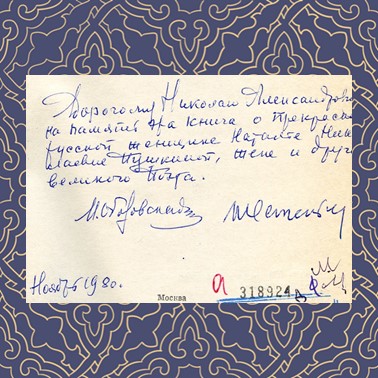 Дорогому Николаю Александрови
на память эта книга о Прекрасн
русской женщине Наталье Нико
лаевне Пушкиной, жене и друге
великого Поэта.
Ноябрь 1980.
Москва
318924